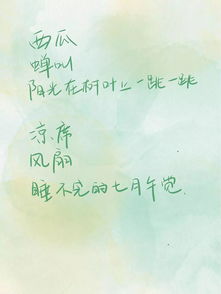 西瓜
蝉叫
阳光在树叶上一跳一跳
凉席
风扇
睡不完的七月午觉